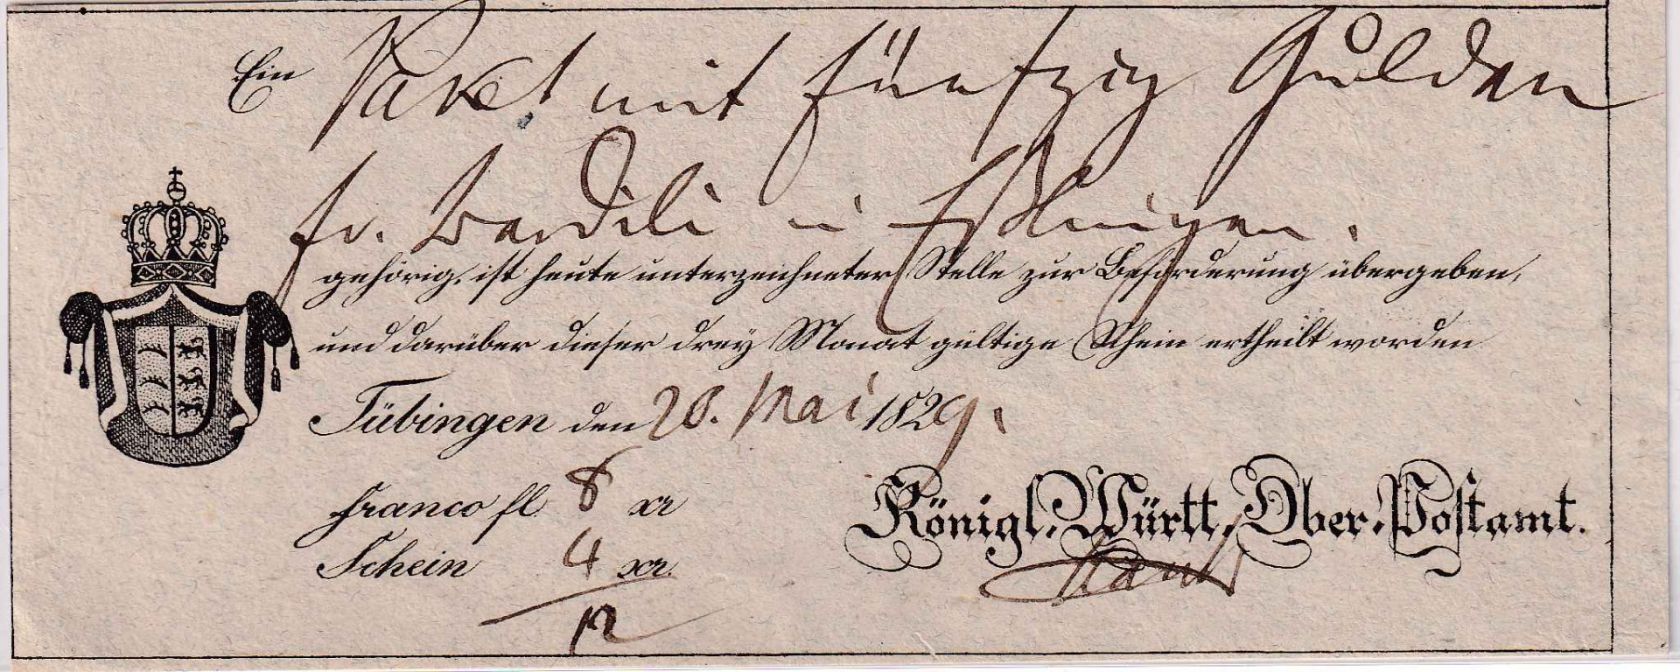 Ein Paket mit fünfzig Gulden
fr. Bardili in Esslingen.
gehörig, ist heute unterzeichneter Stelle zur Beförderung übergeben,
und darüber dieser drey Monat gültige Schein ertheilt worden
Tübingen den 20. Mai 1829.
franco fl 8 xr
Königl. Württ. Ober-Postamt.
Schein 4 xr.
12